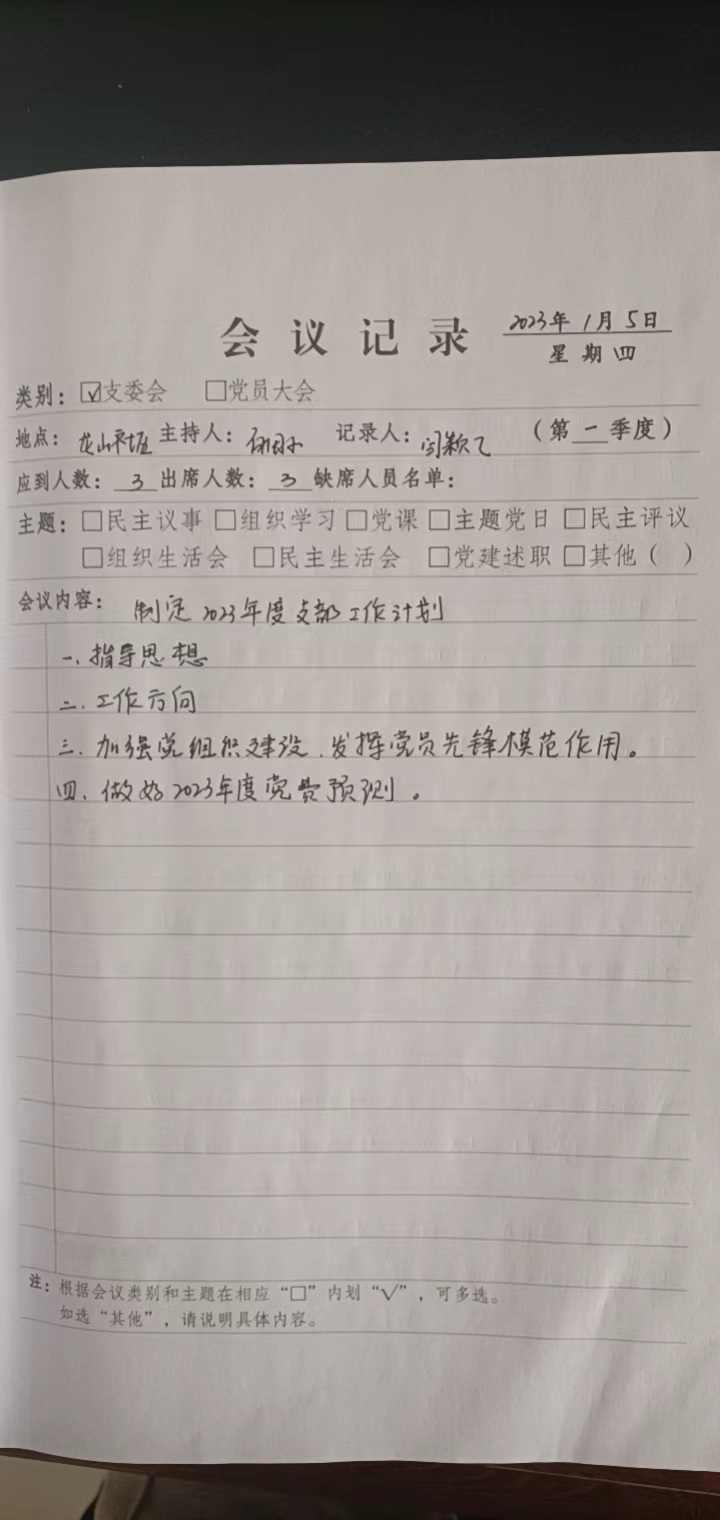 会议记录 2023年1月5日
星期四
类别：☑支委会 □党员大会
地点：龙山 主持人： 记录人：闫颖飞 （第一季度）
应到人数：3 出席人数：3 缺席人员名单：
主题：□民主议事 □组织学习 □党课 □主题党日 □民主评议
□组织生活会 □民主生活会 □党建述职 □其他（ ）
会议内容：制定2023年度支部工作计划
一、指导思想
二、工作方向
三、加强党组织建设、发挥党员先锋模范作用。
四、做好2023年度党费预测。
注：根据会议类别和主题在相应“□”内划“√”，可多选。
如选“其他”，请说明具体内容。